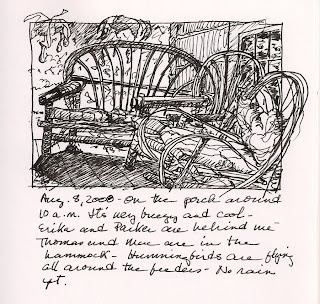 Aug. 8, 2008 - On the porch around
10 a.m. It's very breezy and cool -
Erika and Parker are behind me
Thomas and are in the
hammock - Hummingbirds are flying
all around the feeders - No rain
yet.